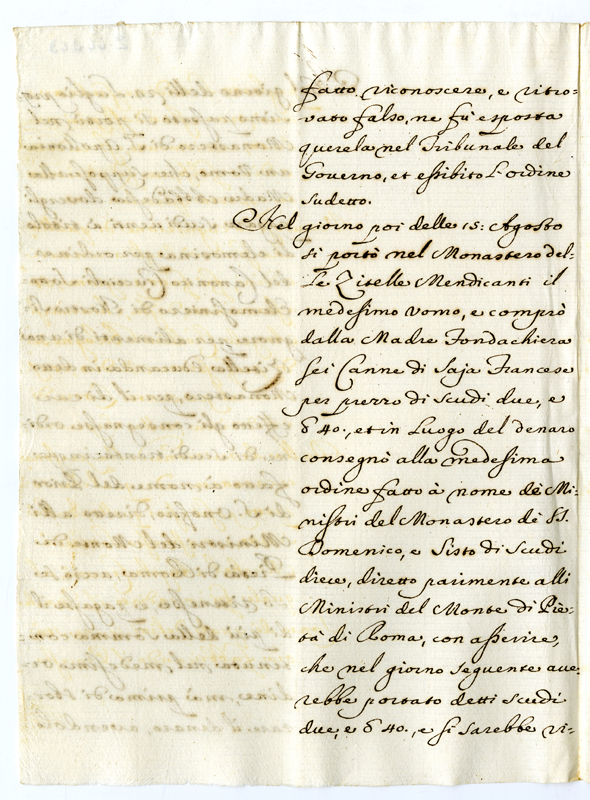 fatto riconoscere, e ritro-
vato falso, ne fù esposta
querela nel Tribunale del
Governo, et essibito l'ordine
sudetto.
Nel giorno poi delle 15: Agosto
si portò nel Monastero del-
le Zitelle Mendicanti il
medesimo vomo, e comprò
dalla Madre Fondachiera
sei Canne di Saja Francese
per prezzo di scudi due, e
40., et in Luogo del denaro
consegnò alla medesima
ordine fatto à nome dè Mi-
nistri del Monastero dè SS.
Domenico, e Sisto di Scudi
diece, diretto parimente alli
Ministri del Monte di Pie-
tà di Roma, con asserire,
che nel giorno seguente ave-
rebbe portato detti scudi
due, e 40., e si sarebbe ri-